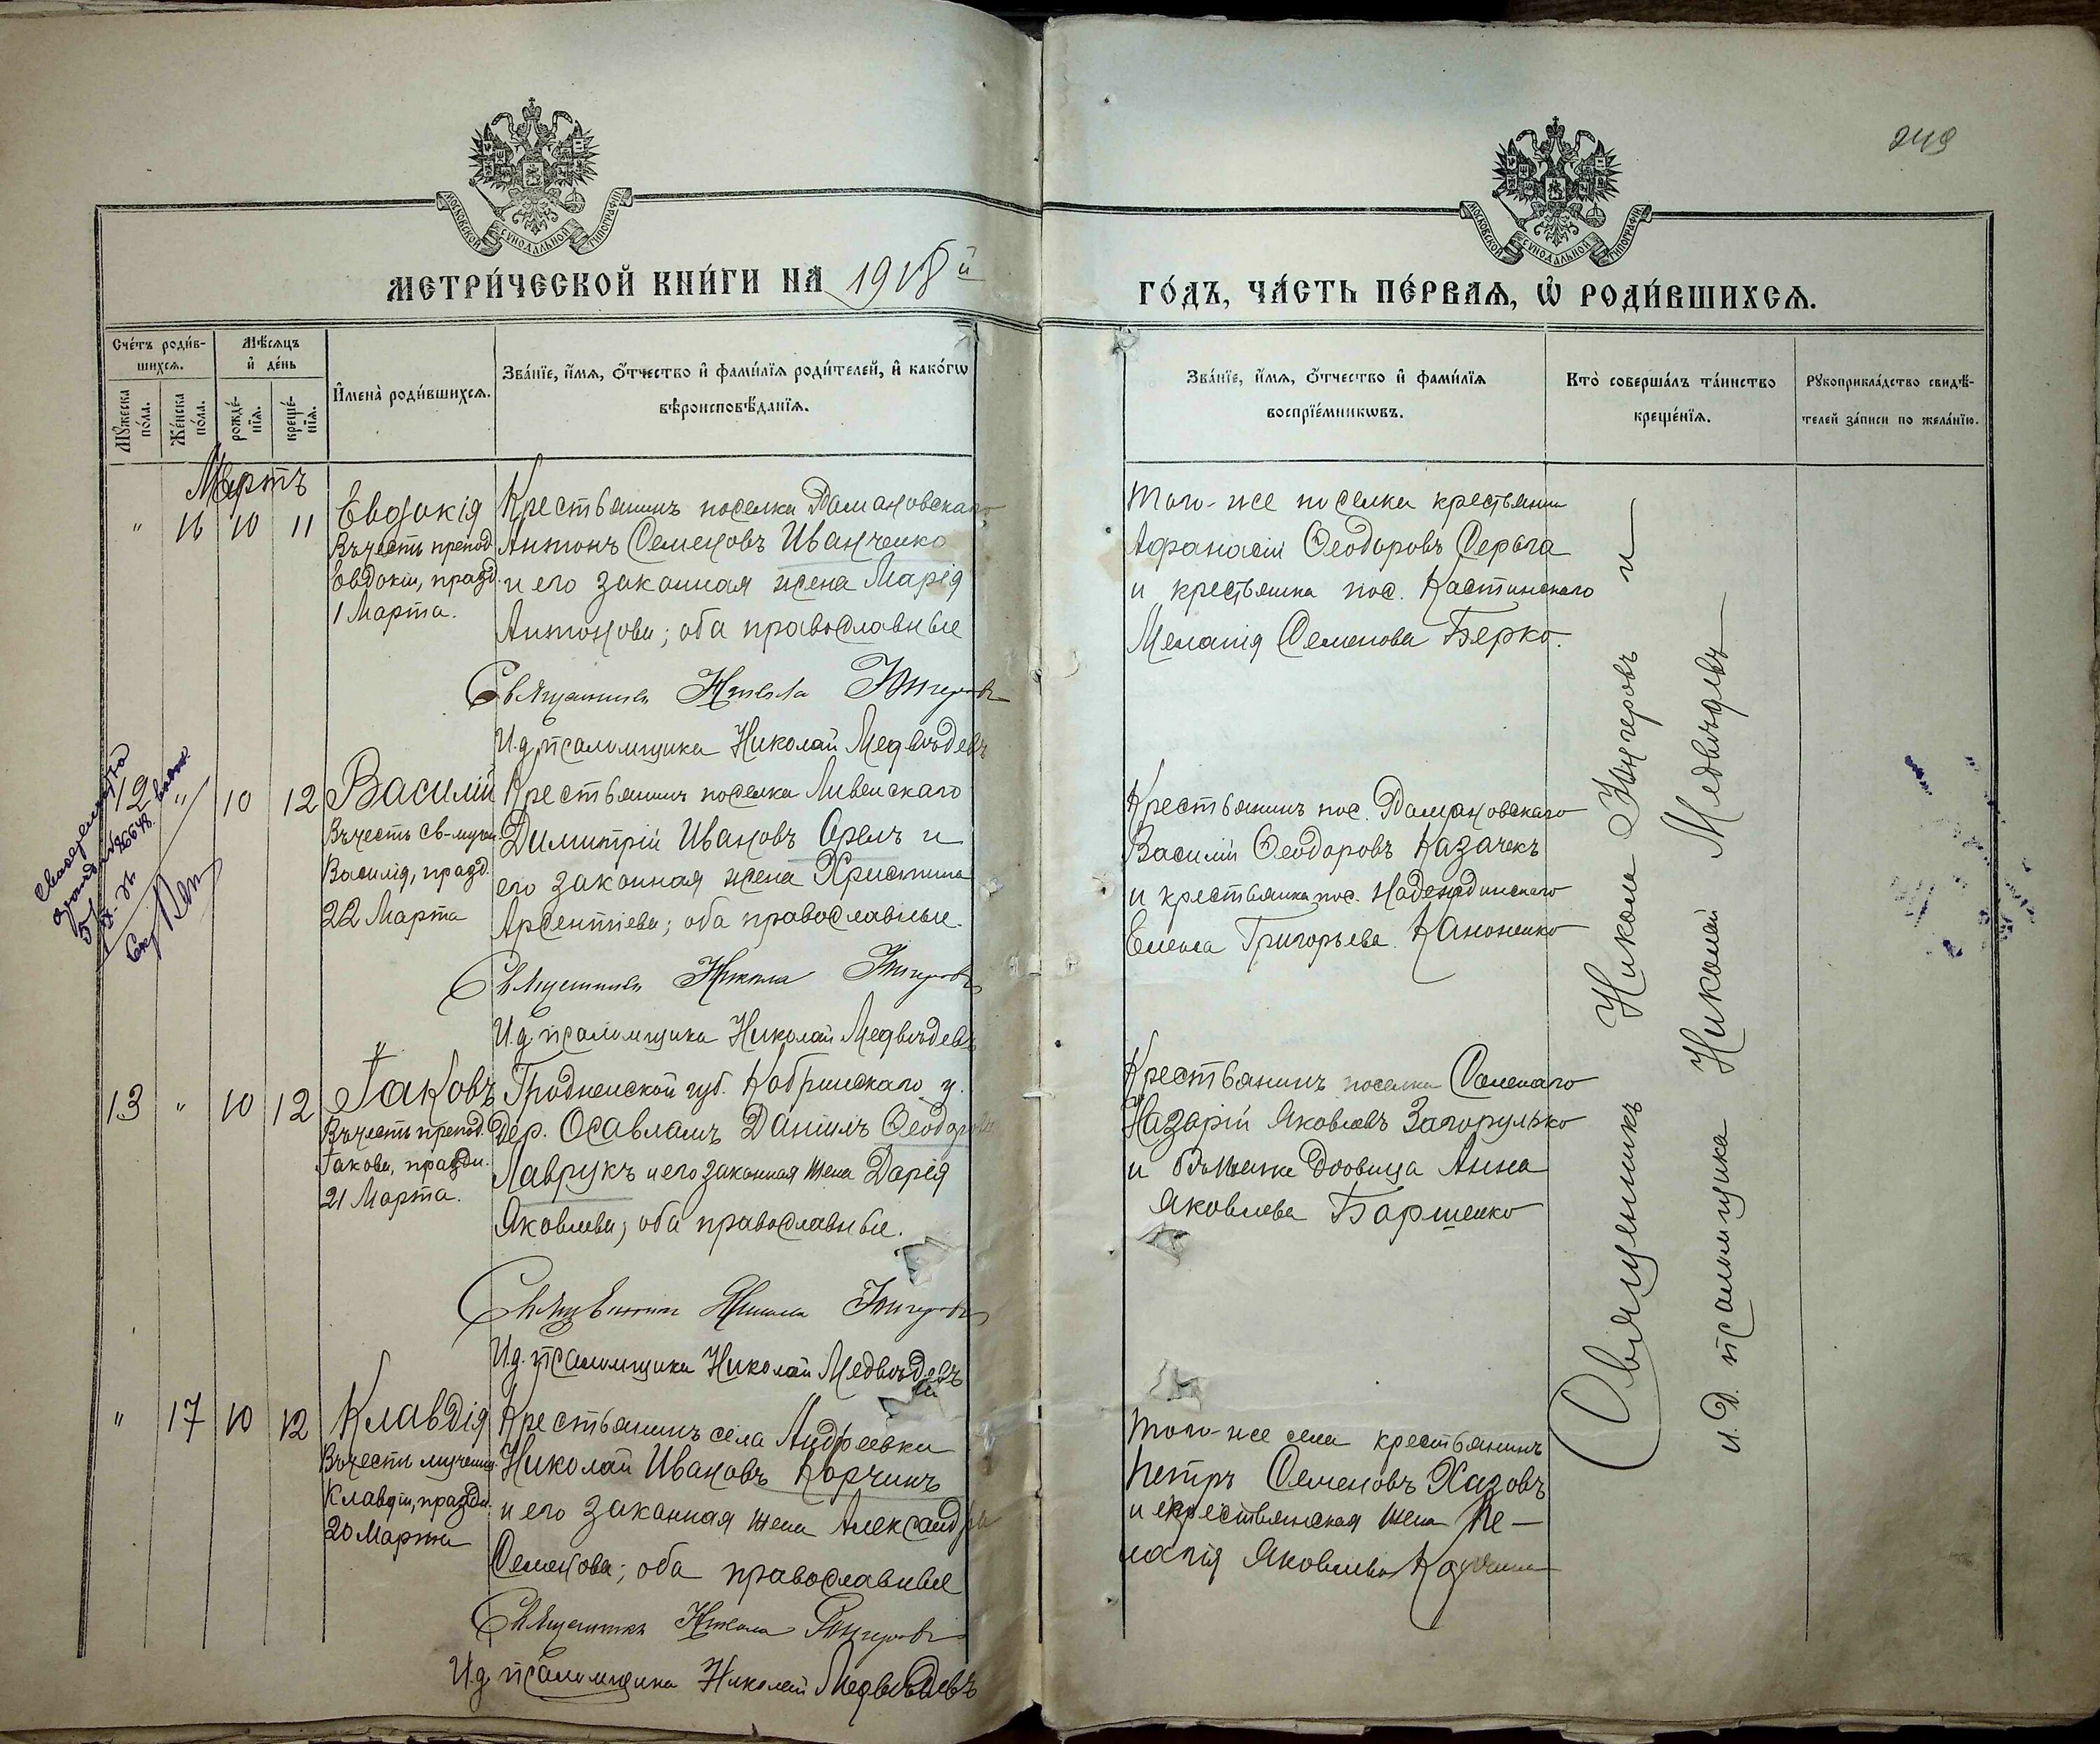 249
МОСКОВСКОЙ СѴНОДАЛЬНОЙ ТИПОГРАФІИ
МОСКОВСКОЙ СѴНОДАЛЬНОЙ ТИПОГРАФІИ
МЕТРИ́ЧЕСКОЙ КНИ́ГИ НА 1918 й
ГО́ДЪ, ЧА́СТЬ ПЕ́РВАѦ, Ѽ РОДИ́ВШИХСѦ.
Сче́тъ роди́в-
шихсѧ.
Мѣ́сѧцъ
и҆ де́нь
Мꙋ́жеска
по́ла.
Же́нска
по́ла.
рожде́-
нїѧ.
креще́-
нїѧ.
И҆мена̀ роди́вшихсѧ.
Зва́нїе, и҆́мѧ, ѻ҆́тчество и҆ фами́лїѧ роди́телей, и҆ како́гѡ
вѣроисповѣ́данїѧ.
Зва́нїе, и҆́мѧ, ѻ҆́тчество и҆ фами́лїѧ
воспрїе́мникѡвъ.
Кто̀ соверша́лъ та́инство
креще́нїѧ.
Рꙋкоприкла́дство свидѣ́-
телей за́писи по жела́нїю.
Мартъ
" 16 10 11
Евдокія
Въ честь препод.
Евдокіи, празд.
1 Марта.
Крестьянинъ поселка Домановскаго
Антонъ Семеновъ Иванченко
и его законная жена Марія
Антонова; оба православные
Священникъ Никола Юнгеровъ
И.д. псаломщика Николай Медвѣдевъ
Того-же поселка крестьянин
Афанасій Ѳеодоровъ Серьга
и крестьянка пос. Костинскаго
Меланія Семенова Берко.
12 " 10 12
Василій
Въ честь св-мучен.
Василія, празд.
22 Марта
Крестьянинъ поселка Ливенскаго
Димитрій Ивановъ Орелъ и
его законная жена Христина
Арсентіева; оба православные.
Священникъ Никола Юнгеровъ
И.д. псаломщика Николай Медвѣдевъ
Крестьянинъ пос. Домановскаго
Василій Ѳеодоровъ Казачекъ
и крестьянка пос. Надеждинскаго
Елена Григорьева Кононенко
13 " 10 12
Іаковъ
Въ честь препод.
Іакова, праздн.
21 Марта.
Гродненской губ. Кобринскаго у.
Дер. Осавламъ Даніилъ Ѳеодоровъ
Лаврукъ и его законная жена Дарія
Яковлева; оба православные.
Священникъ Никола Юнгеровъ
И.д. псаломщика Николай Медвѣдевъ
Крестьянинъ поселка
Назарій Яковлевъ Загорулько
и вдовица Анна
Яковлева
" 17 10 12
Клавдія
Въ честь мучениц.
Клавдіи, праздн.
20 Марта
Крестьянинъ села Андреевки
Николай Ивановъ Корчинъ
и его законная жена Александра
Семенова; оба православные
Священникъ Никола Юнгеровъ
И.д. псаломщика Николай Медвѣдевъ
Того-же села крестьянинъ
Петръ Семеновъ Хазовъ
и крестьянская жена Пе-
лагія Яковлева
Священникъ Никола Юнгеровъ и
И.д. псаломщика Николай Медвѣдевъ